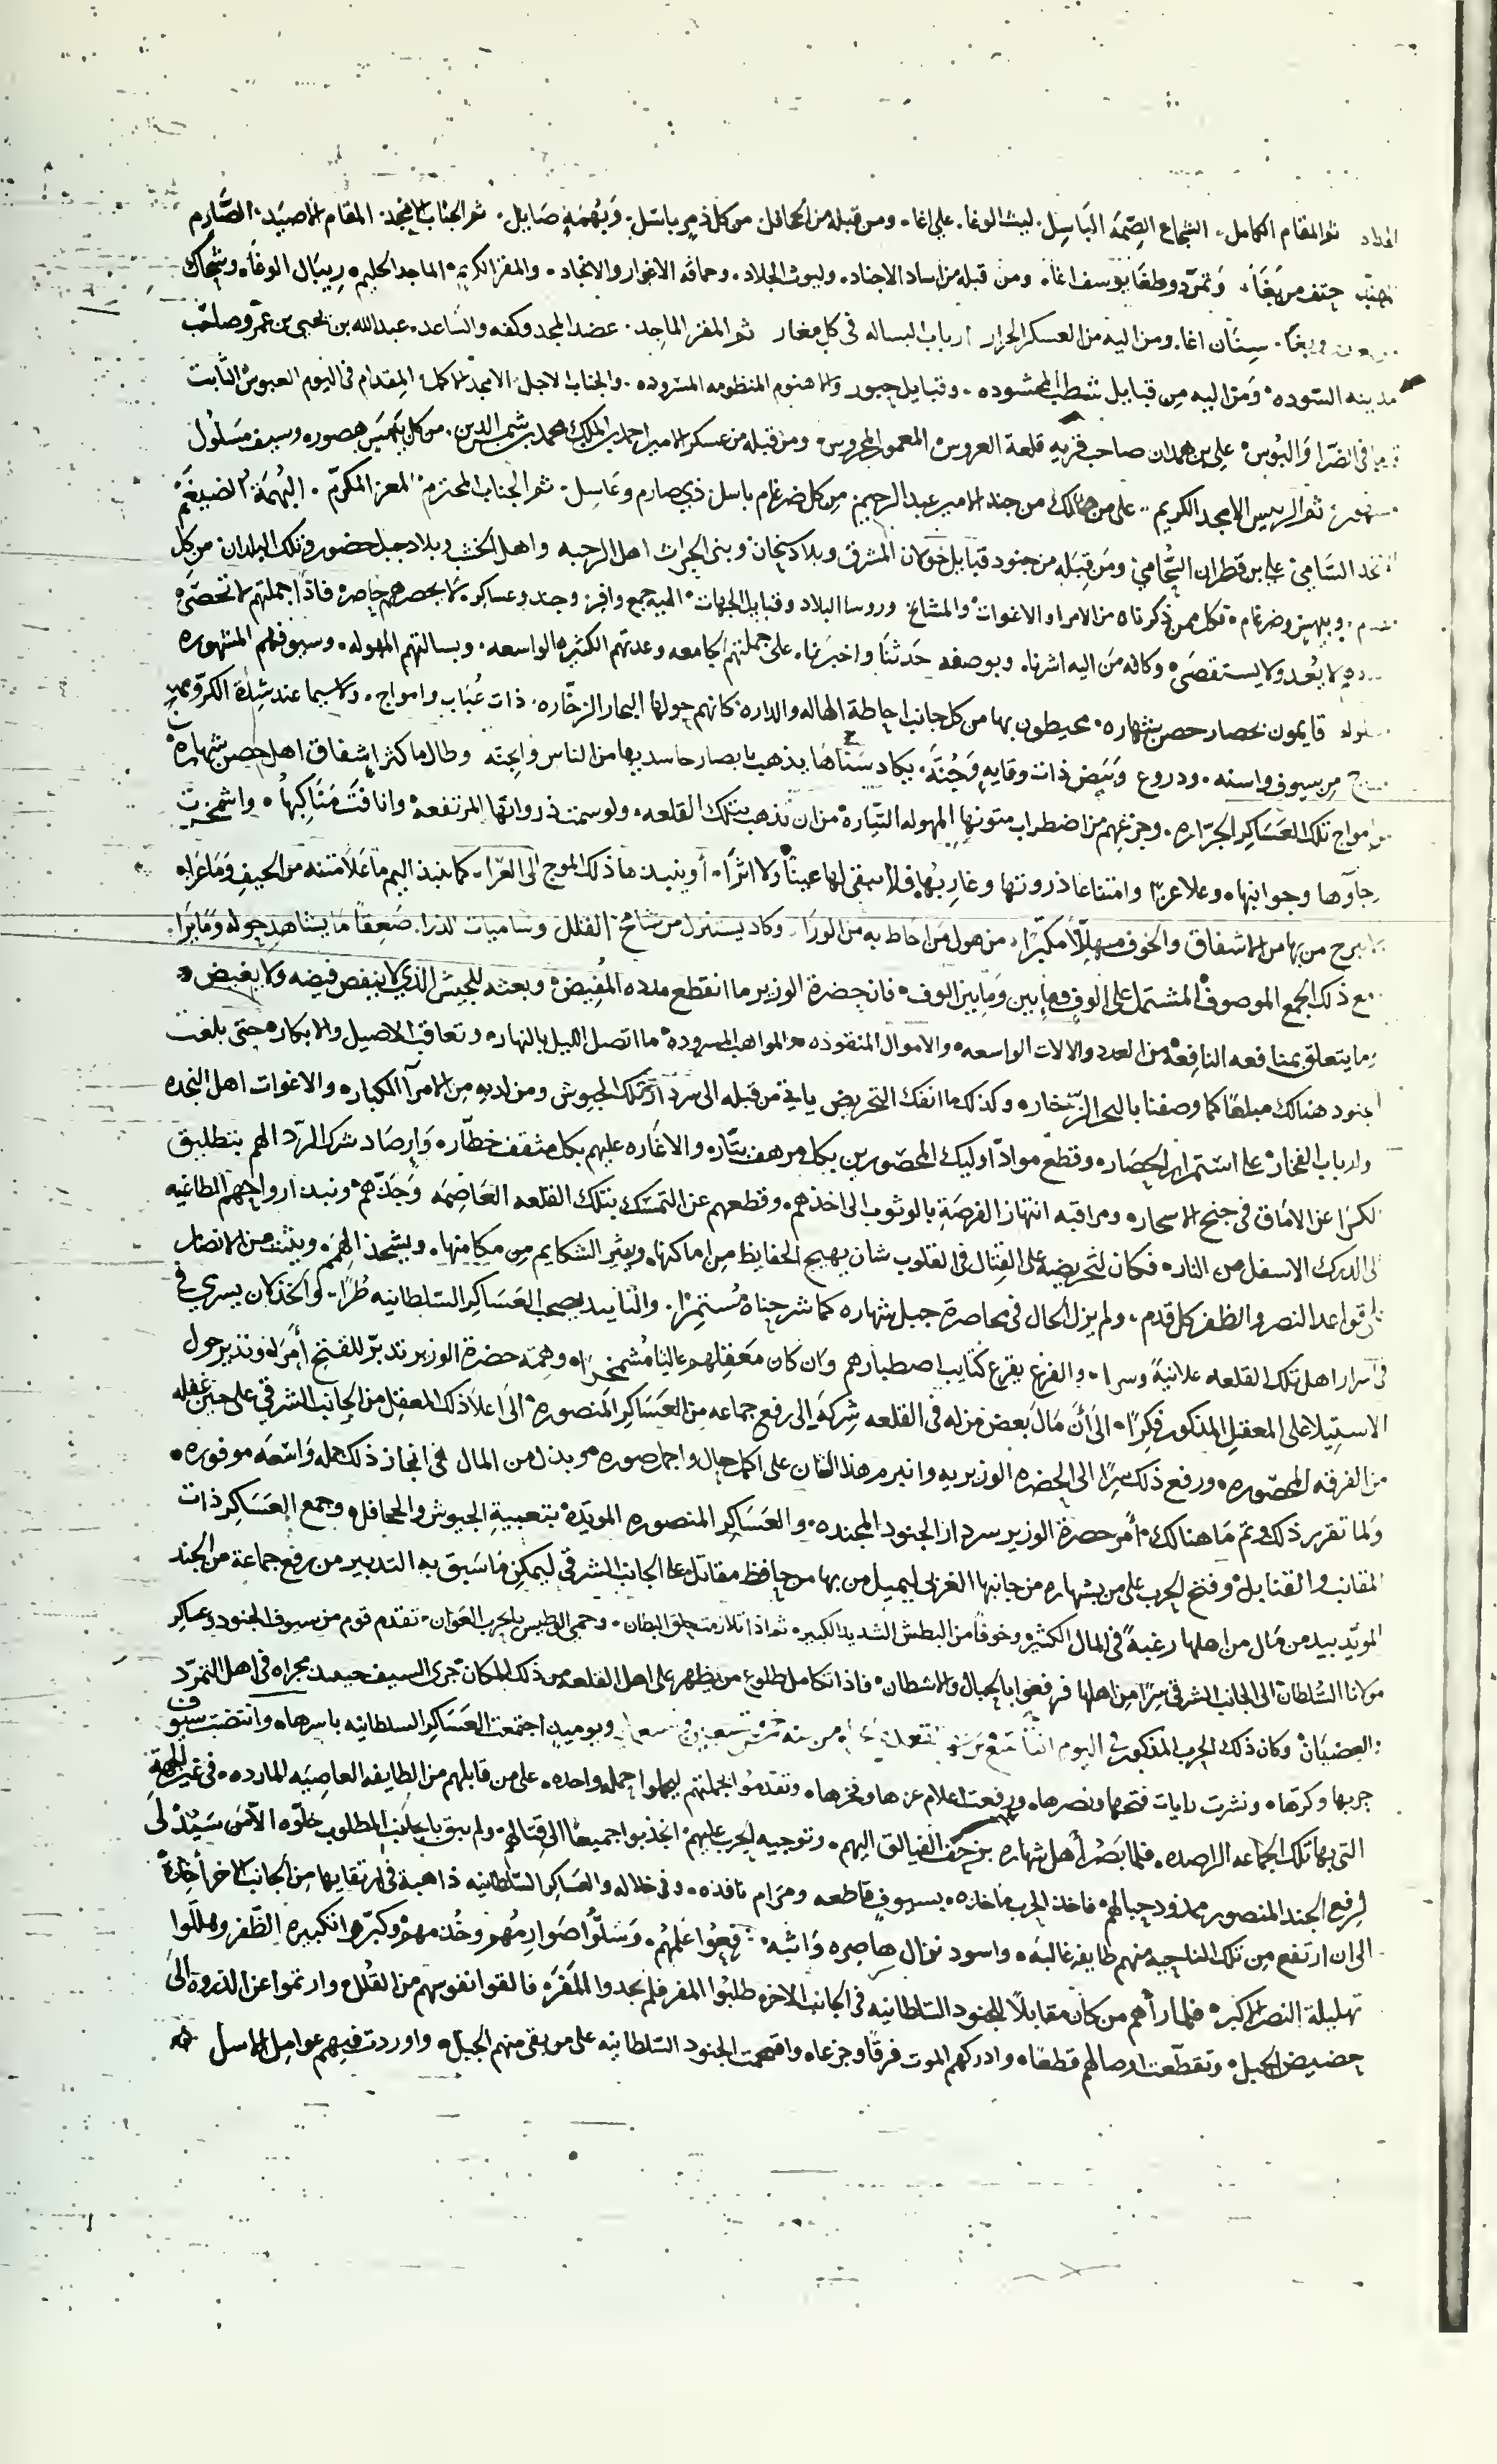 ثم المقام الكامل، الشجاع الصِّمَّة الباسِل، ليث الوغا، علي اغا، ومن قبله من الجحافل من كل ذمر باسل، وبُهمَةٍ صَايل، ثم الجناب الامجد، المقام الاصيَد، الصَّارم
حتف من بَغَا، وَتمرّد وطغَا يوسف اغا، ومن قبله من اساد الاجناد، وليوث الجلاد، وحماة الاغوار والانجاد، والمقر الكريم، الماجد الحليم، ريبَال الوغا،
وبغا، سِنَان اغا، ومن اليه من العسكر الجرار ارباب البساله في كل مغار ثم المقر الماجِد، عضد المجد وكفه والسَّاعد، عبد الله بن يحيى بن عمرو صاحب
مدينه السَّوده، وَمن اليه مِن قبايل المحشوده، وقبايل والاهنوم المنظومه المسروده، والجناب الاجل الامجد الاكمل، المِقدام في اليوم العبوس الثابت
في الضرّا وَالبُوس، علي بن همدان صاحب قريه قلعة العروس، المعمور المحروس، ومن قبله من عسكر الامير احمد بن الملك محمد بن شمس الدين، من كل بَيهَس هصور، وسيف مَسلول
ثم الرييس الامجد الكريم، على من هنالك من جند الامير عبد الرحيم من كل ضرغام باسل، ذي صارم وعَاسِل، ثم الجناب المحترم، المعز المكرّم، البُهمَة الضيغَم
السَّامي، علي بن قطران وَمَن قِبَله من جنود قبايل خولان المشرق وبلاد سنحان وبني الحرث اهل الرحبه واهل وبلاد جبل حضور وتلك البلدان من كل
وبيهس وضرغام، فكل ممن ذكرناه من الامرا والاغوات، والمشايخ وروسا البلاد وقبايل الجهات، اليه جمع وافر، وجند وعساكر، لا يحصرهم حاصر، فاذا جملتهم لا تحصَى،
لا يُعد ولا يستقصَى، وكانه مَن اليه اشرنا، وبوصفه حَدثنَا واخبَرنا، على جملتهم الجامعه وعدتهم الكثيره الواسعه، وبسالتهم المهوله، وسيوفهم المشهوره
قايمون بحصار حصن شهاره، محيطون بها من كل جانب احاطة الهاله والداره، كانهم حولها البحار الزخّاره، ذات عُبَاب وامواج، ولا سيما عند شِدة الكرّ
مِن سيوف واسنه، ودروع وَبَيض ذات وقايهٍ وَجُنَّه، يكاد سَنَاهَا يذهب بابصار حاسديها من الناس والجنّه وطال ما كثر اشفاق اهل حصن شهاره
امواج تلك العَسَاكِر الجرّاره، وجزعهم من اضطراب متونها المهوله التيّاره، من ان تذهب بتلك القلعه، ولو سمت ذرواتها المرتفعه، وانافَت مَنَاكِبها، واشمخرّت
وجوانبها، وعلا عزّا وامتناعا ذروتها وغاربُها، فلا يبقى لها عينًا ولا اثرًا، أو ينبذها ذلك الموج الى العرّا، كما ينبذ اليم ما عَلا متنه من الجيف وَمَا عَراه
من بها من الاشفاق والخوف مهلّلاً مكبّرًا، من هول مَن احاط به من الورَا، وكاد يستنزل من شامخ القلل وسَاميات الذرا، صَعِقًا مَا يشاهد حوله وَمَا يَرَا،
مع ذلك الجمع الموصوف، المشتمل على الوف فما بين وَمَا بين الوف، فان حضرة الوزير ما انقطع مدده المُفِيض، وبعثه للجيش الذي لا ينقص فيضه ولا يغيض،
وما يتعلق بمنافعه النافِعه من العدد والالات الواسعه، والاموال المنقوده، والمواهب المسروده، ما اتصل الليل بالنهار، وتعاقب الاصيل والابكار، حتى بلغت
الجنود هنالك مبلغًا كما وصفنا بالبحر الزخار، وكذلك ما انفك التحريض ياتي من قبله الى سردار تلك الجيوش ومن لديه مِن الامرآ الكبار، والاغوات اهل النجده
وارباب الفخار، على استمرار الحصار، وقطع موادّ اوليك المحصورين بكل مرهف بتّار، والاغاره عليهم بكل مثقف خطّار، وَارصَاد شرك الردّ الهم بتطليق
الكرَا عن الامَاق في جنح الاسحار، ومراقبه انتهاز الفرصَة بالوثوب الى اخذهم، وقطعهم عن التمسّك بتلك القلعه العَاصِمَه وَجَذّهم، ونبذ ارواحهم الطاغيه
الى الدرك الاسفل من النار، فكان لتحريضه على القتال في القلوب شان يهيج الحفايظ من اماكنها، ويثير الشكايم مِن مكامنها، ويشحذ الهِمَم، ويثبّت من الانصار
قواعد النصر والظفر كل قدم، ولم يزل الحال في محاصرة جبل شهاره كما شرحناه مُستمِرّا، والتاييد يصحب العَسَاكِر السّلطانيه طُرًا، كان يسري في
في اسرار اهل تلك القلعه علانيةً وسرا، والفزع يقرع كتايب اصطبارهم وان كان مَعقِلهم عاليًا مُشمَخِرًا، وهِمّة حضرة الوزير تدبّر للفتح أَمرًا، وتدير حول
الاستيلا على المعقل المذكور فِكرًا، الى أَن مَال بعض من له في القلعه شِركة الى رفع جماعه مِن العَسَاكِر المَنصوره، الى اعلا ذلك المعقل من الجانب الشرقي على حين غفله
من الفرقه المحصوره، ورفع ذلك سِرًا الى الحضره الوزيريه وانبرم هذا الشان على اكمل حال واجمل صوره، وبذل من المال في انجاز ذلك جمله وَاسعَه موفوره،
وَلما تقرر ذلك وتم مَا هنالك، أمر حضرة الوزير سردار الجنود المجنده، والعَسَاكِر المنصوره المويّده، بتعبية الجيوش والجحافل، وجمع العسَاكِر ذات
المقانب والقنابل، وفتح الحرب على من بشهاره من جانبها الغربي ليميل من بها من حافظ مقاتل على الجانب الشرقي ليمكِن مَا سَبق به التدبير من رفع جماعة من الجند
المويّد بيد من مَال من اهلها رغبةً في المال الكثير، وخوفًا من البطش الشديد الكبير، ثم اذا تلازمت حلق البطان، وحمي الوطيس بالحرب العَوان، تقدم قوم من سيوف الجنود وعساكر
مولانا السُّلطان الى الجانب الشرقي سِرًا مِن اهلها فرفعوا بالحبال والاشطان، فاذا تكامل طلوع من يظهر على اهل القلعه من ذلك المكان جرى السيف حينيذ مجراه في اهل التمرّد
والعِصيَان، وكان ذلك الحرب المذكور في اليوم ويوميذ اجتمعت العَسَاكِر السلطانيه باسرها، وانتضت سيوف
حربها وكرّها، ونشرت رايات فتحها ونصرها، ورفعت اعلام عزها وفخرها، وتقدمُوا بجملتهم ليحملوا حمله واحده، على من قابلهم من الطايفه العاصِيه المارده، في غير الجهةِ
التي بها تلك الجماعه الراصده، فلما بَصُر أهل شهاره بزحف الفيالق اليهم، وتوجيه الحرب عليهم، انجذبوا جميعًا الى قِتالهم، ولم يبق بالجانب المطلوب خلوّه الّا مَن
لرفع الجند المنصور ممدود حبالهم، فاخذ الحرب مَاخذه، بسيوفٍ قاطعه ومَرامٍ نافذه، وفي خلاله والعَسَاكِر السّلطانيه ذاهبة في ارتقايها مِن الجانب الاخر
الى ان ارتفع من تلك الناحيه منهم طايفه غالبه، واسود نزال هاصره وَاثبه، وَسَلّوا صَوارمهم وكبّروا تكبيرة الظّفر وهلّلوا
تهليلة النصر الاكبر، فلما رأهم من كان مقابلًا للجنود السّلطانيه في الجانب الاخر، طلبُوا المفر فلم يجدوا المَفرّ، فالقوا نفوسهم من القُلل وارتموا عن الذروة الى
حضيض الجبل، وتقطّعت اوصالهم قطعًا، وادركهم الموت فرقًا وجزعا، واقتحمت الجنود السّلطانيه على من بقى منهم الجبل، واوردت فيهم عوامل الاسل